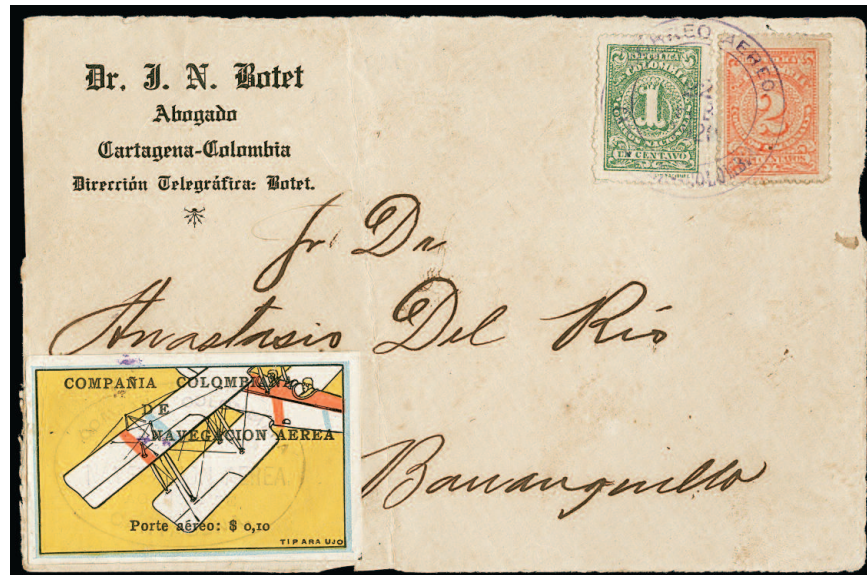 Dr. J. N. Botet
Abogado
Cartagena-Colombia
Dirección Telegráfica: Botet.
CORREO AEREO
COLOMBIA
1
UN CENTAVO
2
CENTAVOS
Sr. Dr
Anastasio Del Rio
Barranquilla
COMPAÑIA COLOMBIANA
DE
NAVEGACION AEREA
Porte aéreo: $ 0,10
TIP ARAUJO